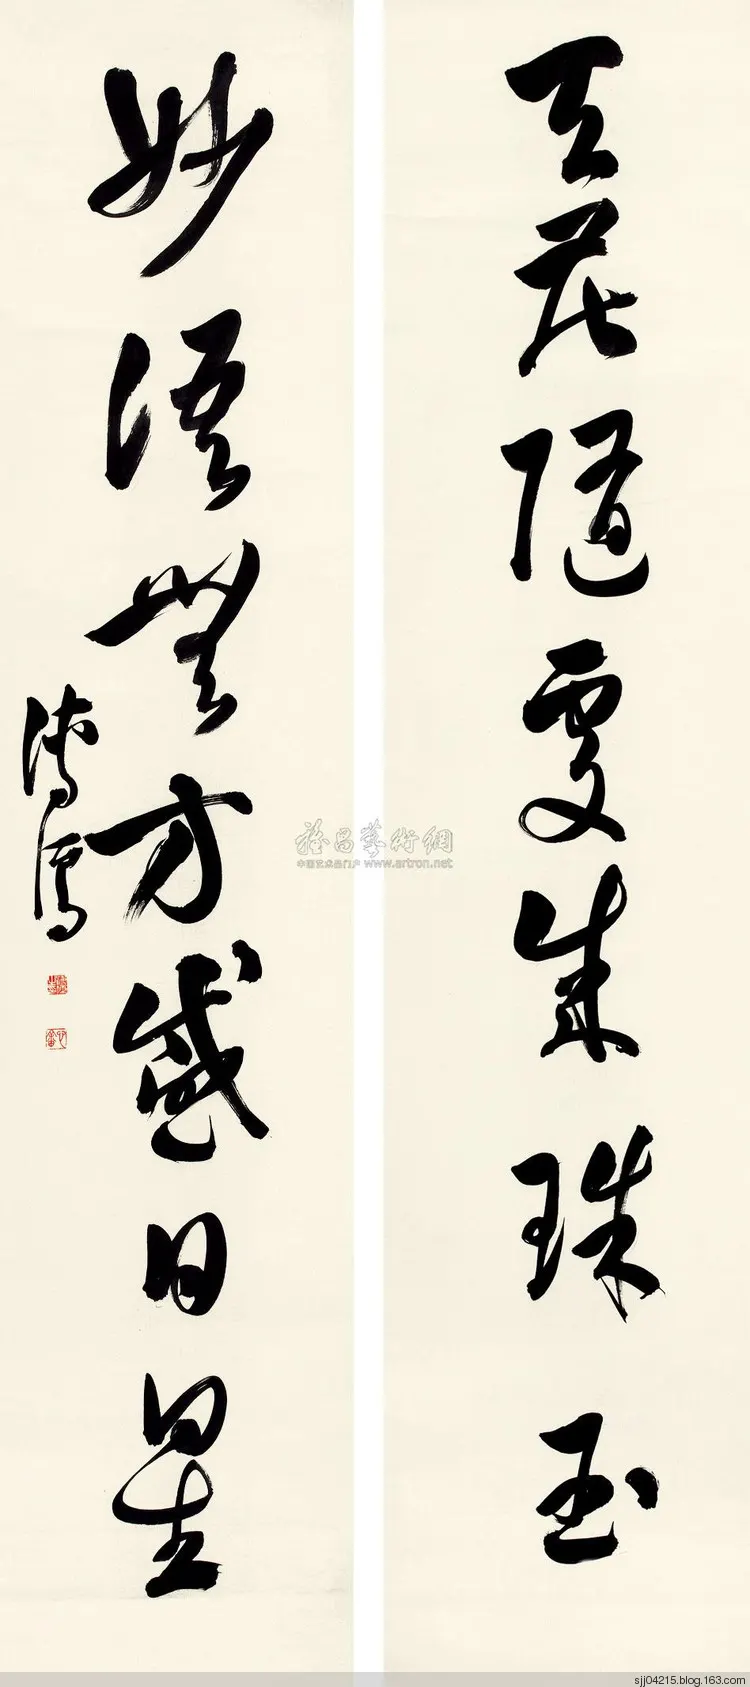 天花隨處珠玉
妙語無方盛日星
溥儒
雅昌藝術網
中国艺术品门户 www.artron.net
sjj04215.blog.163.com